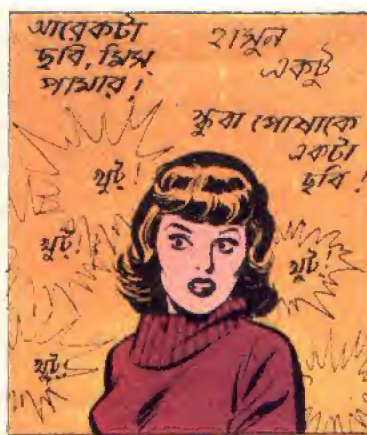 আরেকটা
ছবি, মিস্
পামার!
হাসুন
একটু
স্কুবা পোষাকে
একটা
ছবি!
খুট!
খুট!
খুট!
খুট!